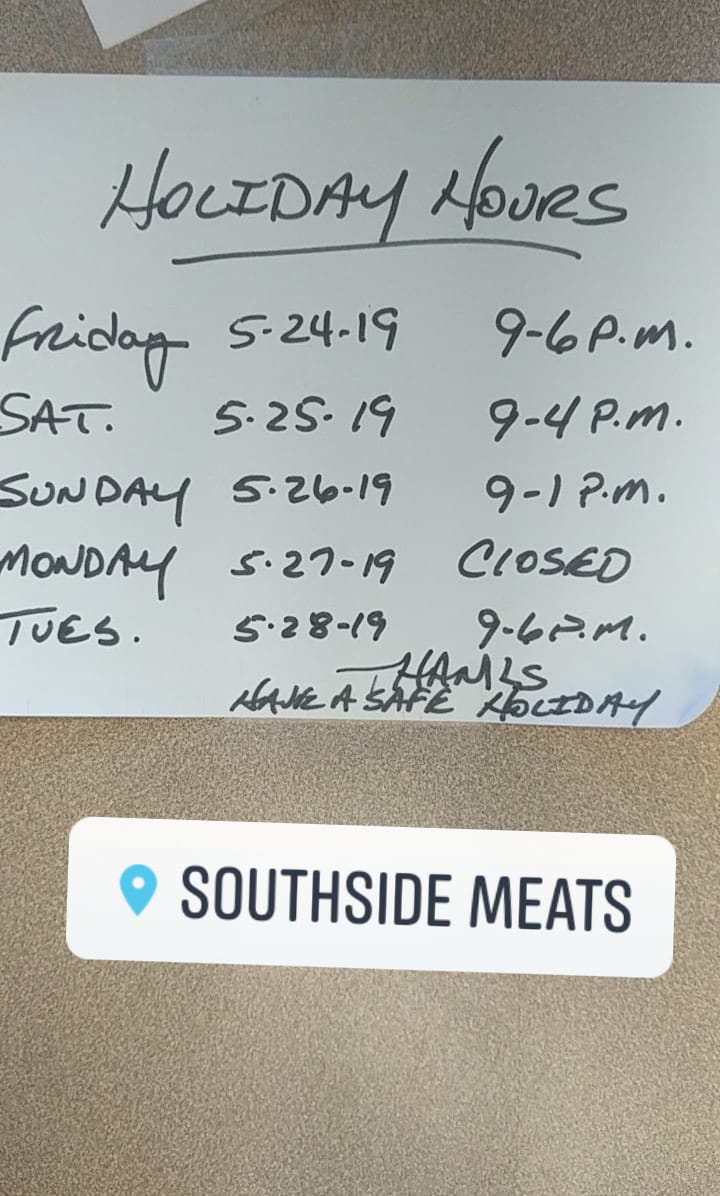 HOLIDAY HOURS
Friday 5-24-19 9-6 P.M.
SAT. 5-25-19 9-4 P.M.
SUNDAY 5-26-19 9-1 P.M.
MONDAY 5-27-19 CLOSED
TUES. 5-28-19 9-6 P.M.
THANKS
HAVE A SAFE HOLIDAY
SOUTHSIDE MEATS